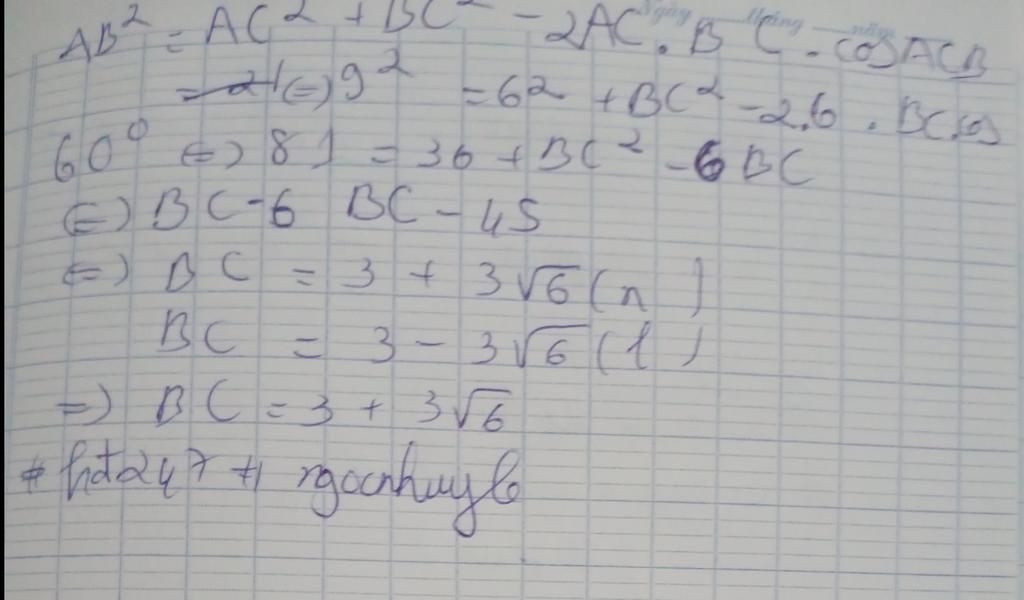 AB² = AC² + BC² - 2AC.BC.cosACB
(=) 9² = 6² + BC² - 2.6.BC.cos
60° (=) 81 = 36 + BC² - 6BC
(=) BC - 6 BC - 45
(=) BC = 3 + 3√6 (n)
BC = 3 - 3√6 (l)
=) BC = 3 + 3√6